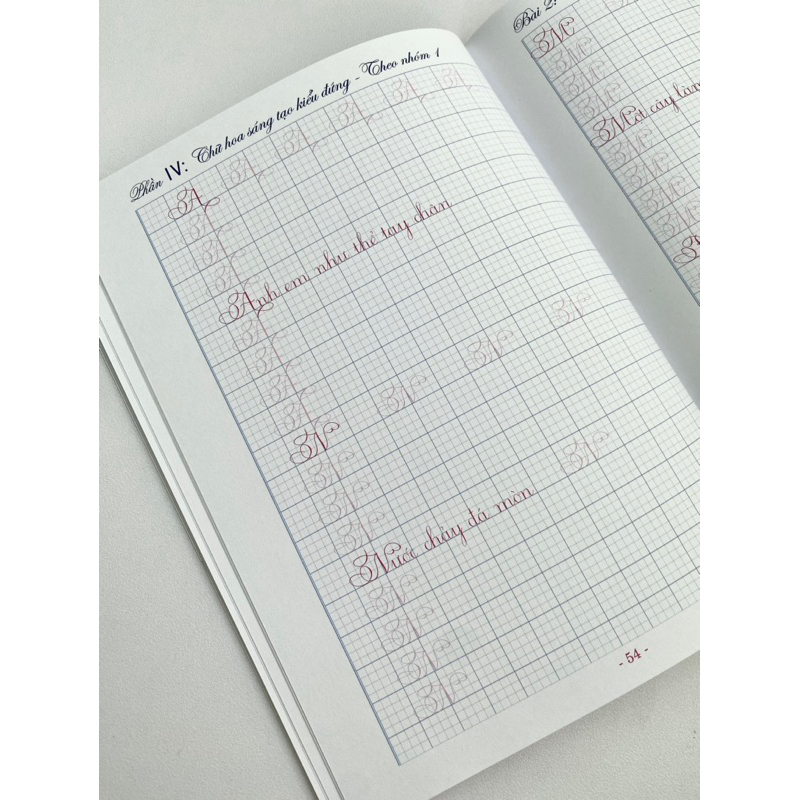 Phần IV: Chữ hoa sáng tạo kiểu đứng - Theo nhóm 1
A A A A A A
A
A
A
Anh em như thể tay chân
A
A
A
A
N N N N
N
N
N N
Nước chảy đá mòn
N
N
N
N
- 54 -
Bài 2:
M
M
M
M
Một cây làm
M
M
M
M